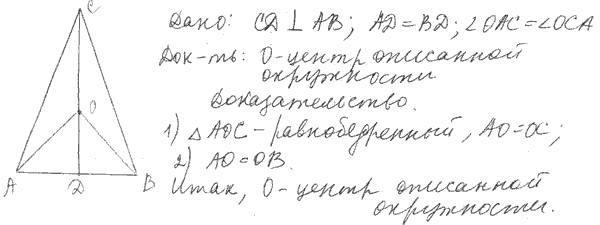 C
Дано: CD ⊥ AB; AD=BD; ∠OAC=∠OCA
Док-ть: O-центр описанной
окружности
Доказательство.
O
1) △AOC-равнобедренный, AO=OC;
2) AO=OB.
A D B
Итак, O-центр описанной
окружности.